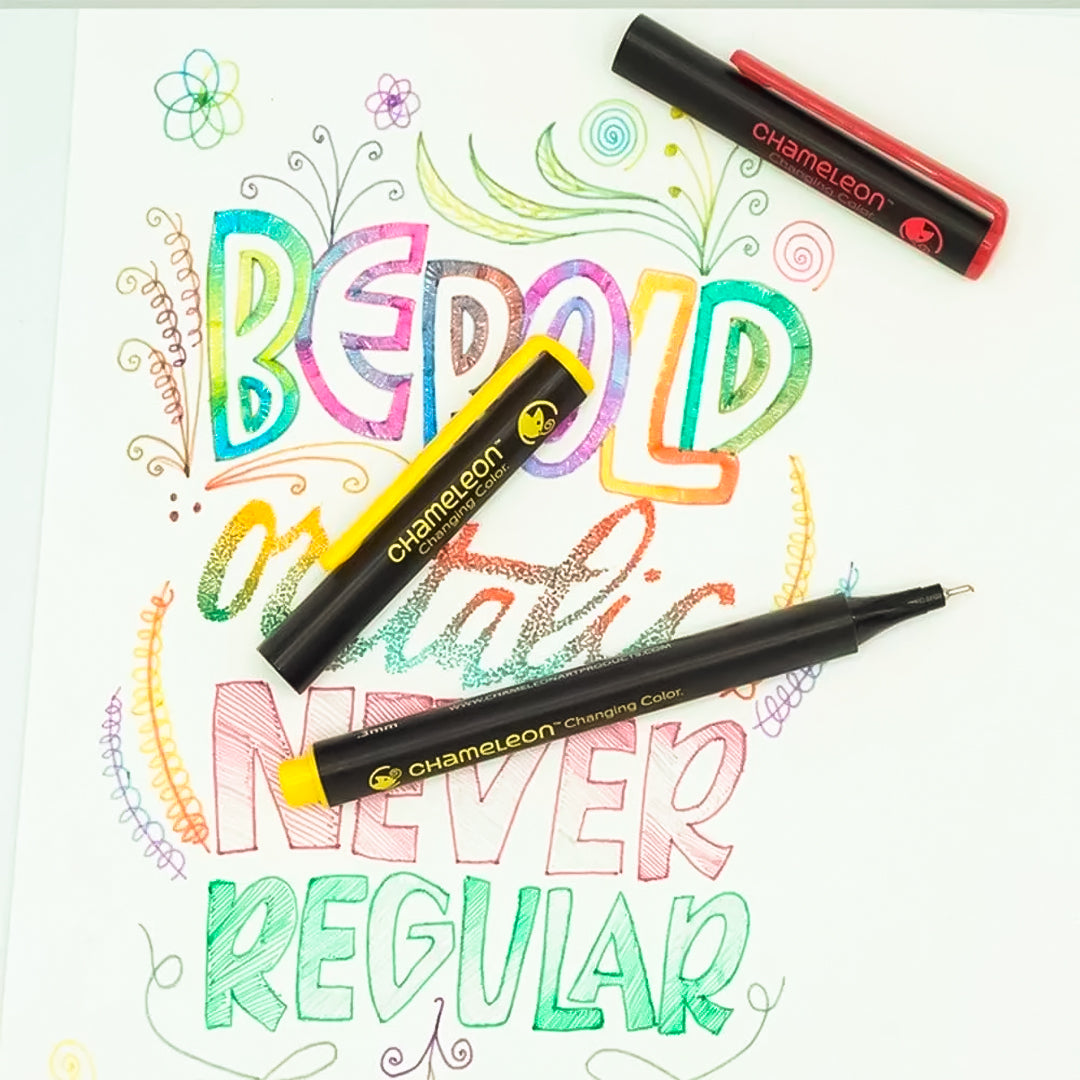 CHameLeon™
Changing Color.
BE BOLD
or italic
CHameLeon™
Changing Color.
NEVER
.3mm
WWW.CHAMELEONARTPRODUCTS.COM
CHameLeon™ Changing Color.
REGULAR